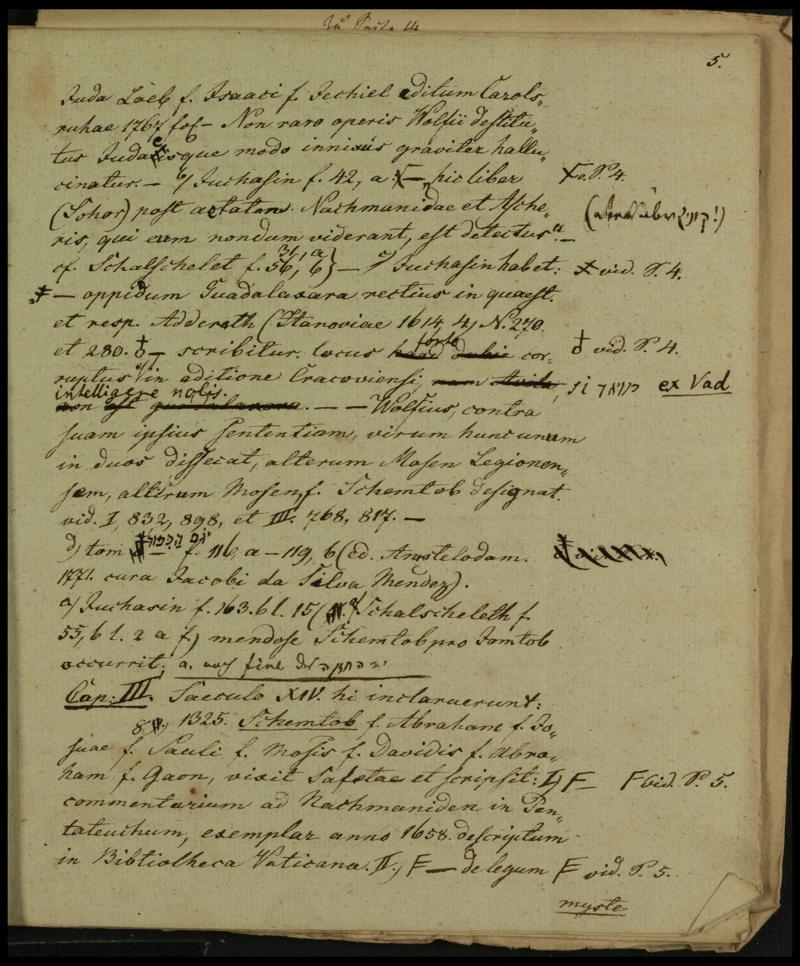 Zu Seite 14
5.
Juda Löeb f. Isaaci f. Jechiel editum Carols„
ruhae 1767 fol.– Non raro operis Wolfii destitu„
tus Judaeisque modo innixus graviter hallu„
cinatur.– Juchasin f. 42, a „hic liber
P. 4.
(Sohar) post aetatem Nachmanidae et Asche„
ris, qui eum nondum viderant, est detectus“–
cf. Schalschelet f. 56, b) – Juchasin habet:
31, a
vid. P. 4.
– oppidum Guadalaxara rectius in quaest.
et resp. Adderath (Hanoviae 1614, 4) N. 270.
et 280. – scribitur. locus cor„
forte
vid. P. 4.
ruptus in aditione Cracoviensi, si
ex Vad
intelligere nolis. – – Wolfius, contra
suam ipsius sententiam, virum hunc unum
in duos dissecat, alterum Mosen Legionen„
sem, alterum Mosen f. Schemtob designat.
vid. I, 832, 898, et III. 768, 817. –
d) tom f. 116, a – 119, b (Ed. Amstelodam.
1771. cura Jacobi da Silva Mendez).
a) Juchasin f. 163. b l. 15 Schalscheleth f.
55, b l. 2 a f) mendose Schemtob pro Jomtob
occurrit;
Cap: III. Saeculo XIV. hi inclaruerunt:
1325. Schemtob f. Abraham f. Jo„
suae f. Sauli f. Mosis f. Davidis f. Abra„
ham f. Gaon, vixit Safetae et scripsit: I) F–
F vid. P. 5.
commentarium ad Nachmaniden in Pen„
tateuchum, exemplar anno 1658. descriptum
in Bibliotheca Vaticana. II.) F – de legum
F vid. P. 5.
myste